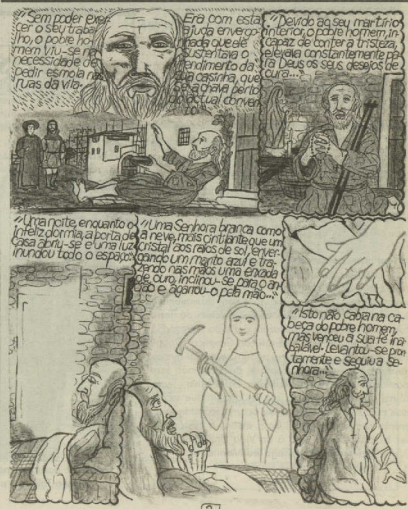 "Sem poder exer-
cer o seu traba-
lho o pobre ho-
mem viu-se na
necessidade de
pedir esmola nas
ruas da vila-
Era com esta
ajuda envergo-
nhada que ele
sustentava o
rendimento da
sua casinha, que
se achava perto
do actual conven-
to
"Devido ao seu martírio
interior, o pobre homem, in-
capaz de conter a tristeza,
elevava constantemente pa-
ra Deus os seus desejos de
cura..."
"Uma noite, enquanto o
infeliz dormia, a porta da
casa abriu-se e uma luz
inundou todo o espaço
"Uma Senhora branca como
a neve, mais cintilante que um
cristal aos raios de sol, enver-
gando um manto azul e tra-
zendo nas mãos uma enxada
de ouro, inclinou-se para o an-
cião e agarrou-o pela mão..."
"Isto não cabia na ca-
beça do pobre homem,
mas venceu a sua fé ina-
balável. Levantou-se pron-
tamente e seguiu a Se-
nhora..."